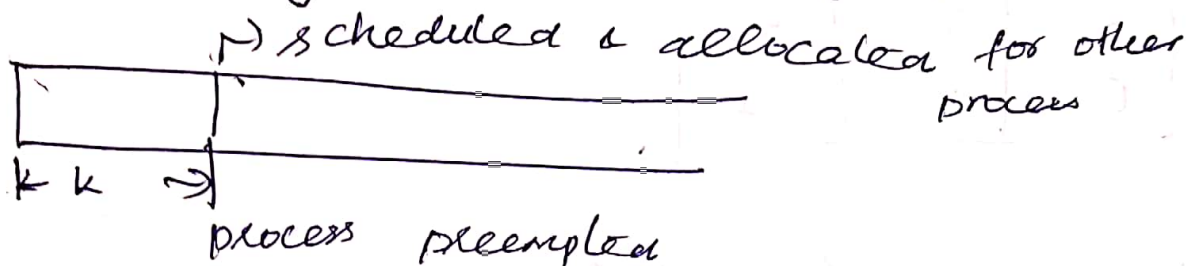 scheduled & allocated for other
process
k
process preempted